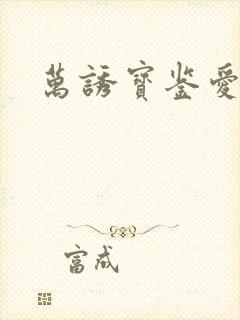 萬誘寶鉴愛
富成